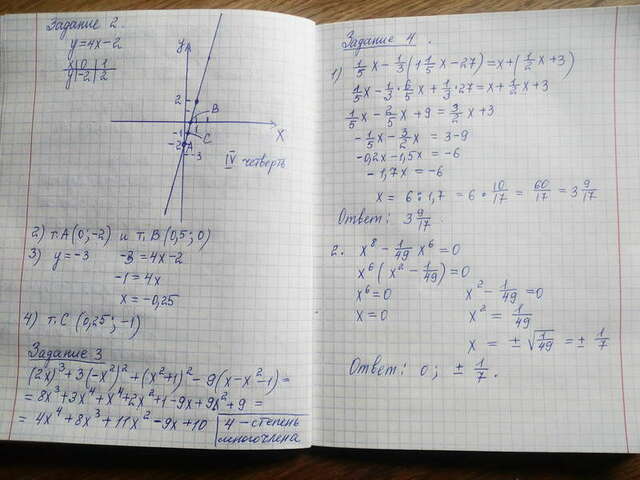 Задание 2.
y=4x-2
x|0|1
y|-2|2
y
2
B
-1
1
C
X
-2
A
-3
IV четверть
2) т.A(0;-2) и т.B(0,5;0)
3) y=-3 -3=4x-2
-1=4x
x=-0,25
4) т.C(0,25;-1)
Задание 3
(2x)³+3(-x²)²+(x²+1)²-9(x-x²-1)=
=8x³+3x⁴+x⁴+2x²+1-9x+9x²+9=
=4x⁴+8x³+11x²-9x+10 4-степень
многочлена
Задание 4.
1) 1/5x-1/3(1 1/5x-27)=x+(1/2x+3)
1/5x-1/3·6/5x+1/3·27=x+1/2x+3
1/5x-2/5x+9=3/2x+3
-1/5x-3/2x=3-9
-0,2x-1,5x=-6
-1,7x=-6
x=6:1,7=6·10/17=60/17=3 9/17
Ответ: 3 9/17.
2. x⁸-1/49x⁶=0
x⁶(x²-1/49)=0
x⁶=0 x²-1/49=0
x=0 x²=1/49
x=±√1/49=±1/7
Ответ: 0; ±1/7.